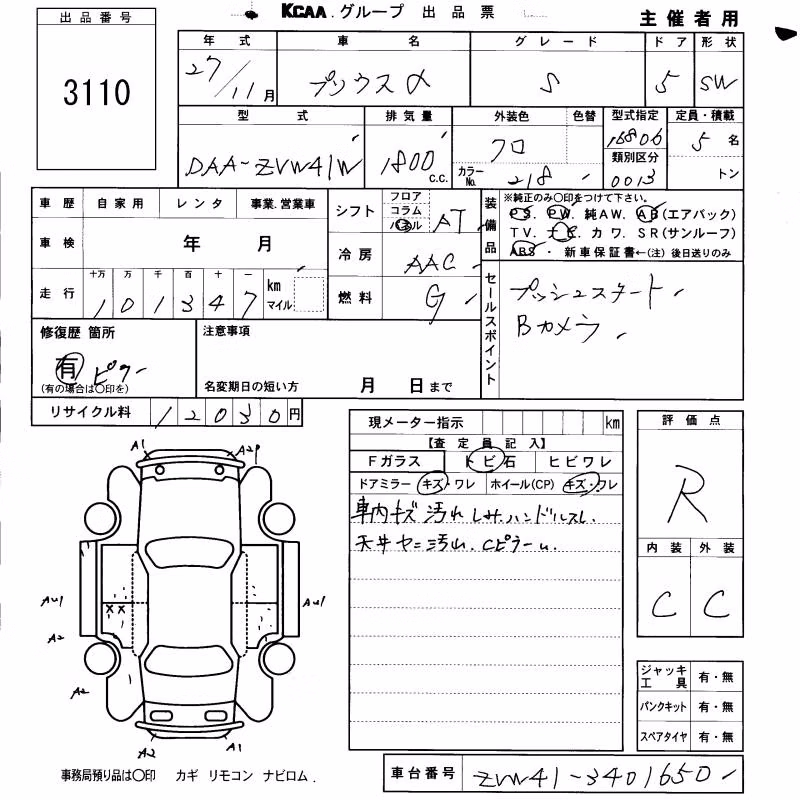 KCAA グループ 出品票
主催者用
出品番号
3110
年式 車名 グレード ドア 形状
27/11月 プリウスα S 5 SW
型式 排気量 外装色 色替 型式指定 定員・積載
DAA-ZVW41W 1800 c.c. クロ 16806 5名
カラーNo. 218 類別区分 0013 トン
車歴 自家用 レンタ 事業.営業車
車検 年 月
走行 十万 万 千 百 十 一
101347 km マイル
シフト フロア コラム パネル AT
冷房 AAC
燃料 G
装備品 ※純正のみ〇印をつけて下さい。
PS. PW. 純AW. AB(エアバック)
TV. ナビ. カワ. SR(サンルーフ)
ABS・新車保証書←(注) 後日送りのみ
セールスポイント
プッシュスタート
Bカメラ
修復歴 箇所
有 ピラー
(有の場合は〇印を)
注意事項
名変期日の短い方 月 日まで
リサイクル料 12030円
現メーター指示 km
【査定員記入】
Fガラス トビ石 ヒビワレ
ドアミラー キズ・ワレ ホイール(CP) キズ・ワレ
車内キズ 汚れ ハンドルスレ
天井ヤニ汚れ Cピラー
評価点
R
内装 外装
C C
ジャッキ工具 有・無
パンクキット 有・無
スペアタイヤ 有・無
A1 A2P
AU1 XX AU1
A2
A2
A2 A1
事務局預り品は〇印 カギ リモコン ナビロム.
車台番号 ZVW41-3401650